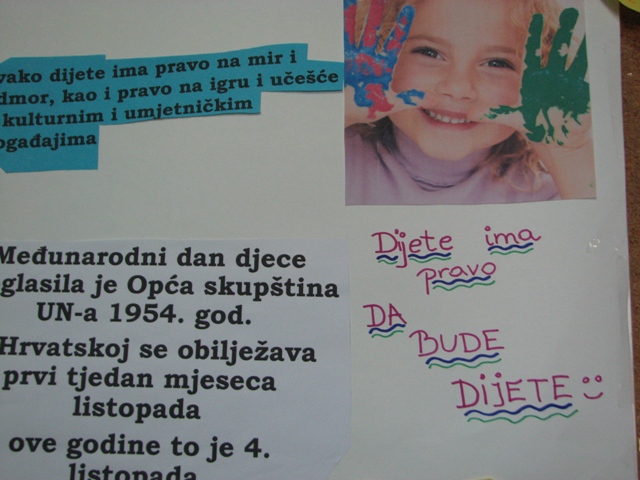 vako dijete ima pravo na mir i
dmor, kao i pravo na igru i učešće
kulturnim i umjetničkim
ogađajima
Međunarodni dan djece
glasila je Opća skupština
UN-a 1954. god.
Hrvatskoj se obilježava
prvi tjedan mjeseca
listopada
ove godine to je 4.
listopada
Dijete ima
pravo
DA
BUDE
DIJETE